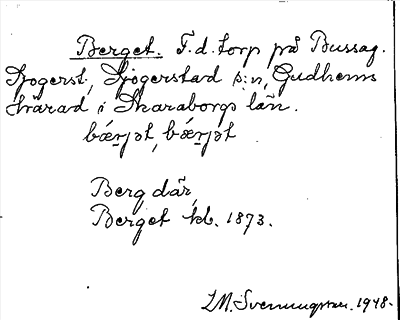 Berget. F.d. torp på Bussag.
Sjogerst., Sjögerstad s:n, Gudhems
härad i Skaraborgs län.
bǽrjət, bǽrjət
Berg där,
Berget kb. 1873.
I.M. Svenungsson. 1948.